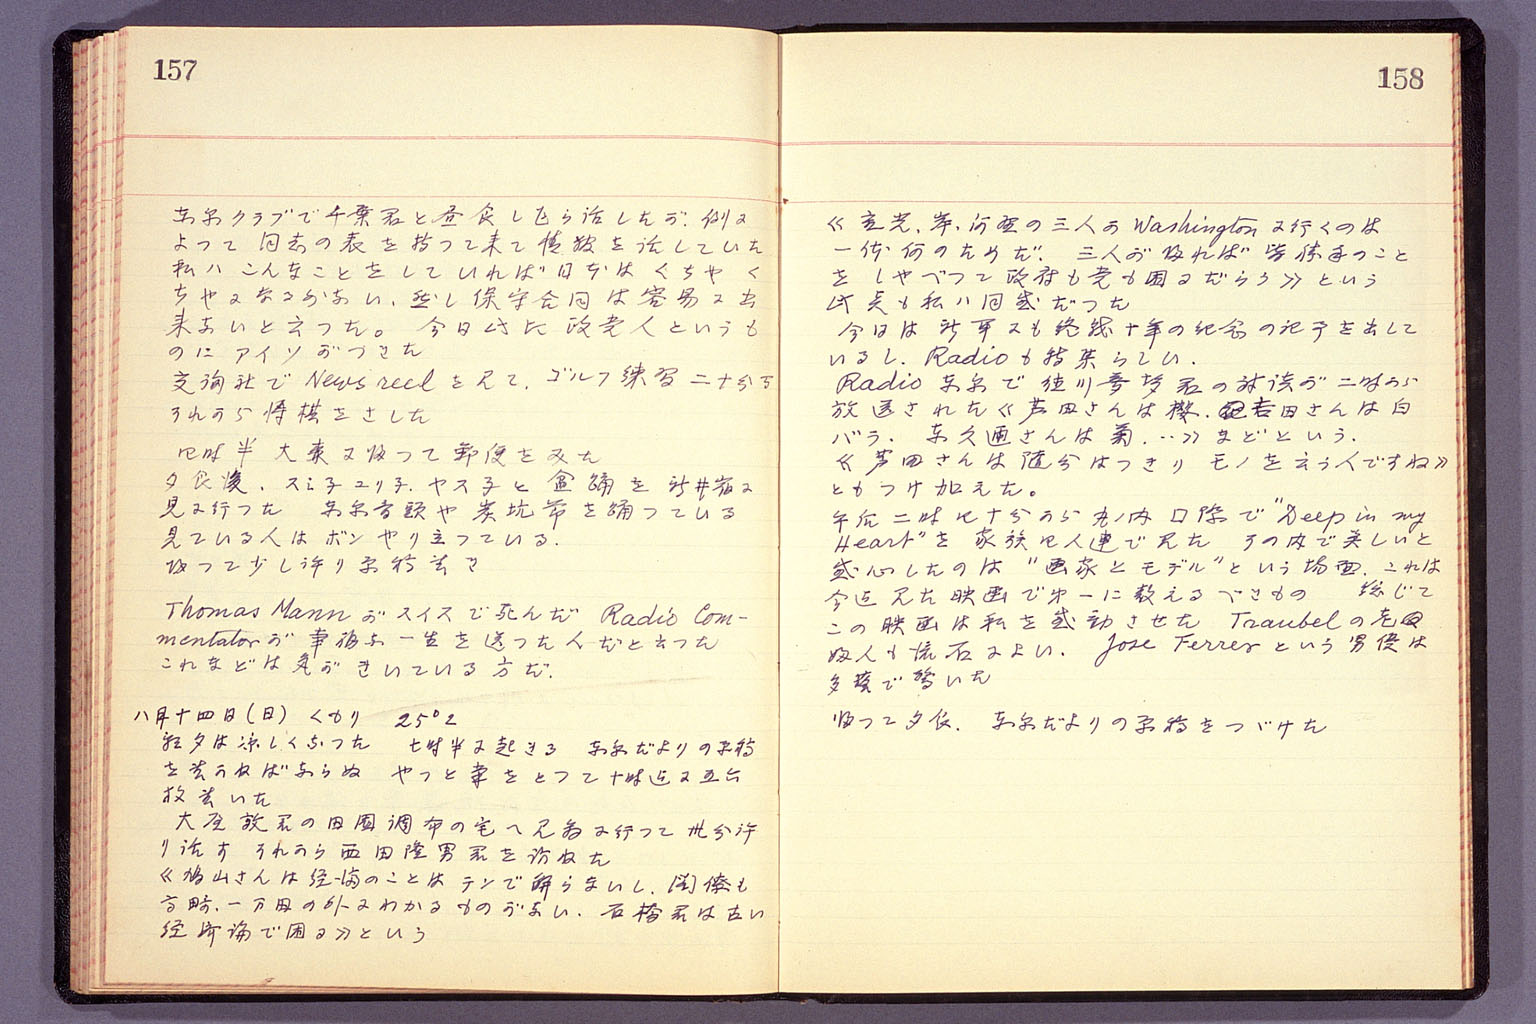 157
東京クラブで千葉君と昼食しながら話したが、例に
よつて同志の表を持つて来て情報を話していた
私ハこんなことをしていれば日本はくちやく
ちやになるかない、然し保守合同は容易に出
来ないと云つた。 今日此比政党人というも
のにアイソがつきた
交詢社でNews reelを見て、ゴルフ練習二十分
それから将棋をさした
四時半大東に帰つて郵便をみた
夕食後、スミ子ユリ子、ヤス子と盆踊を
見に行つた 東京音頭や炭坑節を踊つている
見ている人はボンヤリ立つている.
帰つて少し許り原稿書き
Thomas Mannがスイスで死んだ Radio Com-
mentatorが幸福な一生を送つた人だと云つた
これなどは気がきいている方だ.
八月十四日(日) くもり 25°2
朝夕は涼しくなつた 七時半に起きる 東京だよりの原稿
を書かねばならぬ やつと筆をとつて十時迄に五六
枚書いた
大屋敦君の田園調布の宅へ見舞に行つて 卅分許
り話す それから西田隆男君を訪ねた
《鳩山さんは経済のことはテンで解らないし、閣僚も
高碕、一万田の外にわかるものがない. 石橋君は古い
経済論で困る》という
158
《重光、岸、河野の三人がWashingtonに行くのは
一体何のためだ. 三人が帰れば皆勝手のこと
をしやべつて政府も党も困るだらう》という
此点も私ハ同感だつた
今日は新聞にも終戦十年の紀念の記事を出して
いるし、Radioも特集らしい.
Radio東京で徳川夢声君の対談が二時から
放送された《芦田さんは 吉田さんは白
バラ. 東久邇さんは菊. ‥》などという.
《芦田さんは随分はつきりモノを云う人ですね》
ともつけ加えた。
午后二時四十分から丸ノ内日際で"Deep in my
Heart"を家族四人連で見た その内で美しいと
感心したのは"画家とモデル"という場面. これは
今迄見た映画で第一に数えるべきもの 総じて
この映画は私を感動させた Traubelの
婦人も流石によい. Jose Ferrerという男優は
多芸で驚いた
帰つて夕食. 東京だよりの原稿をつづけた